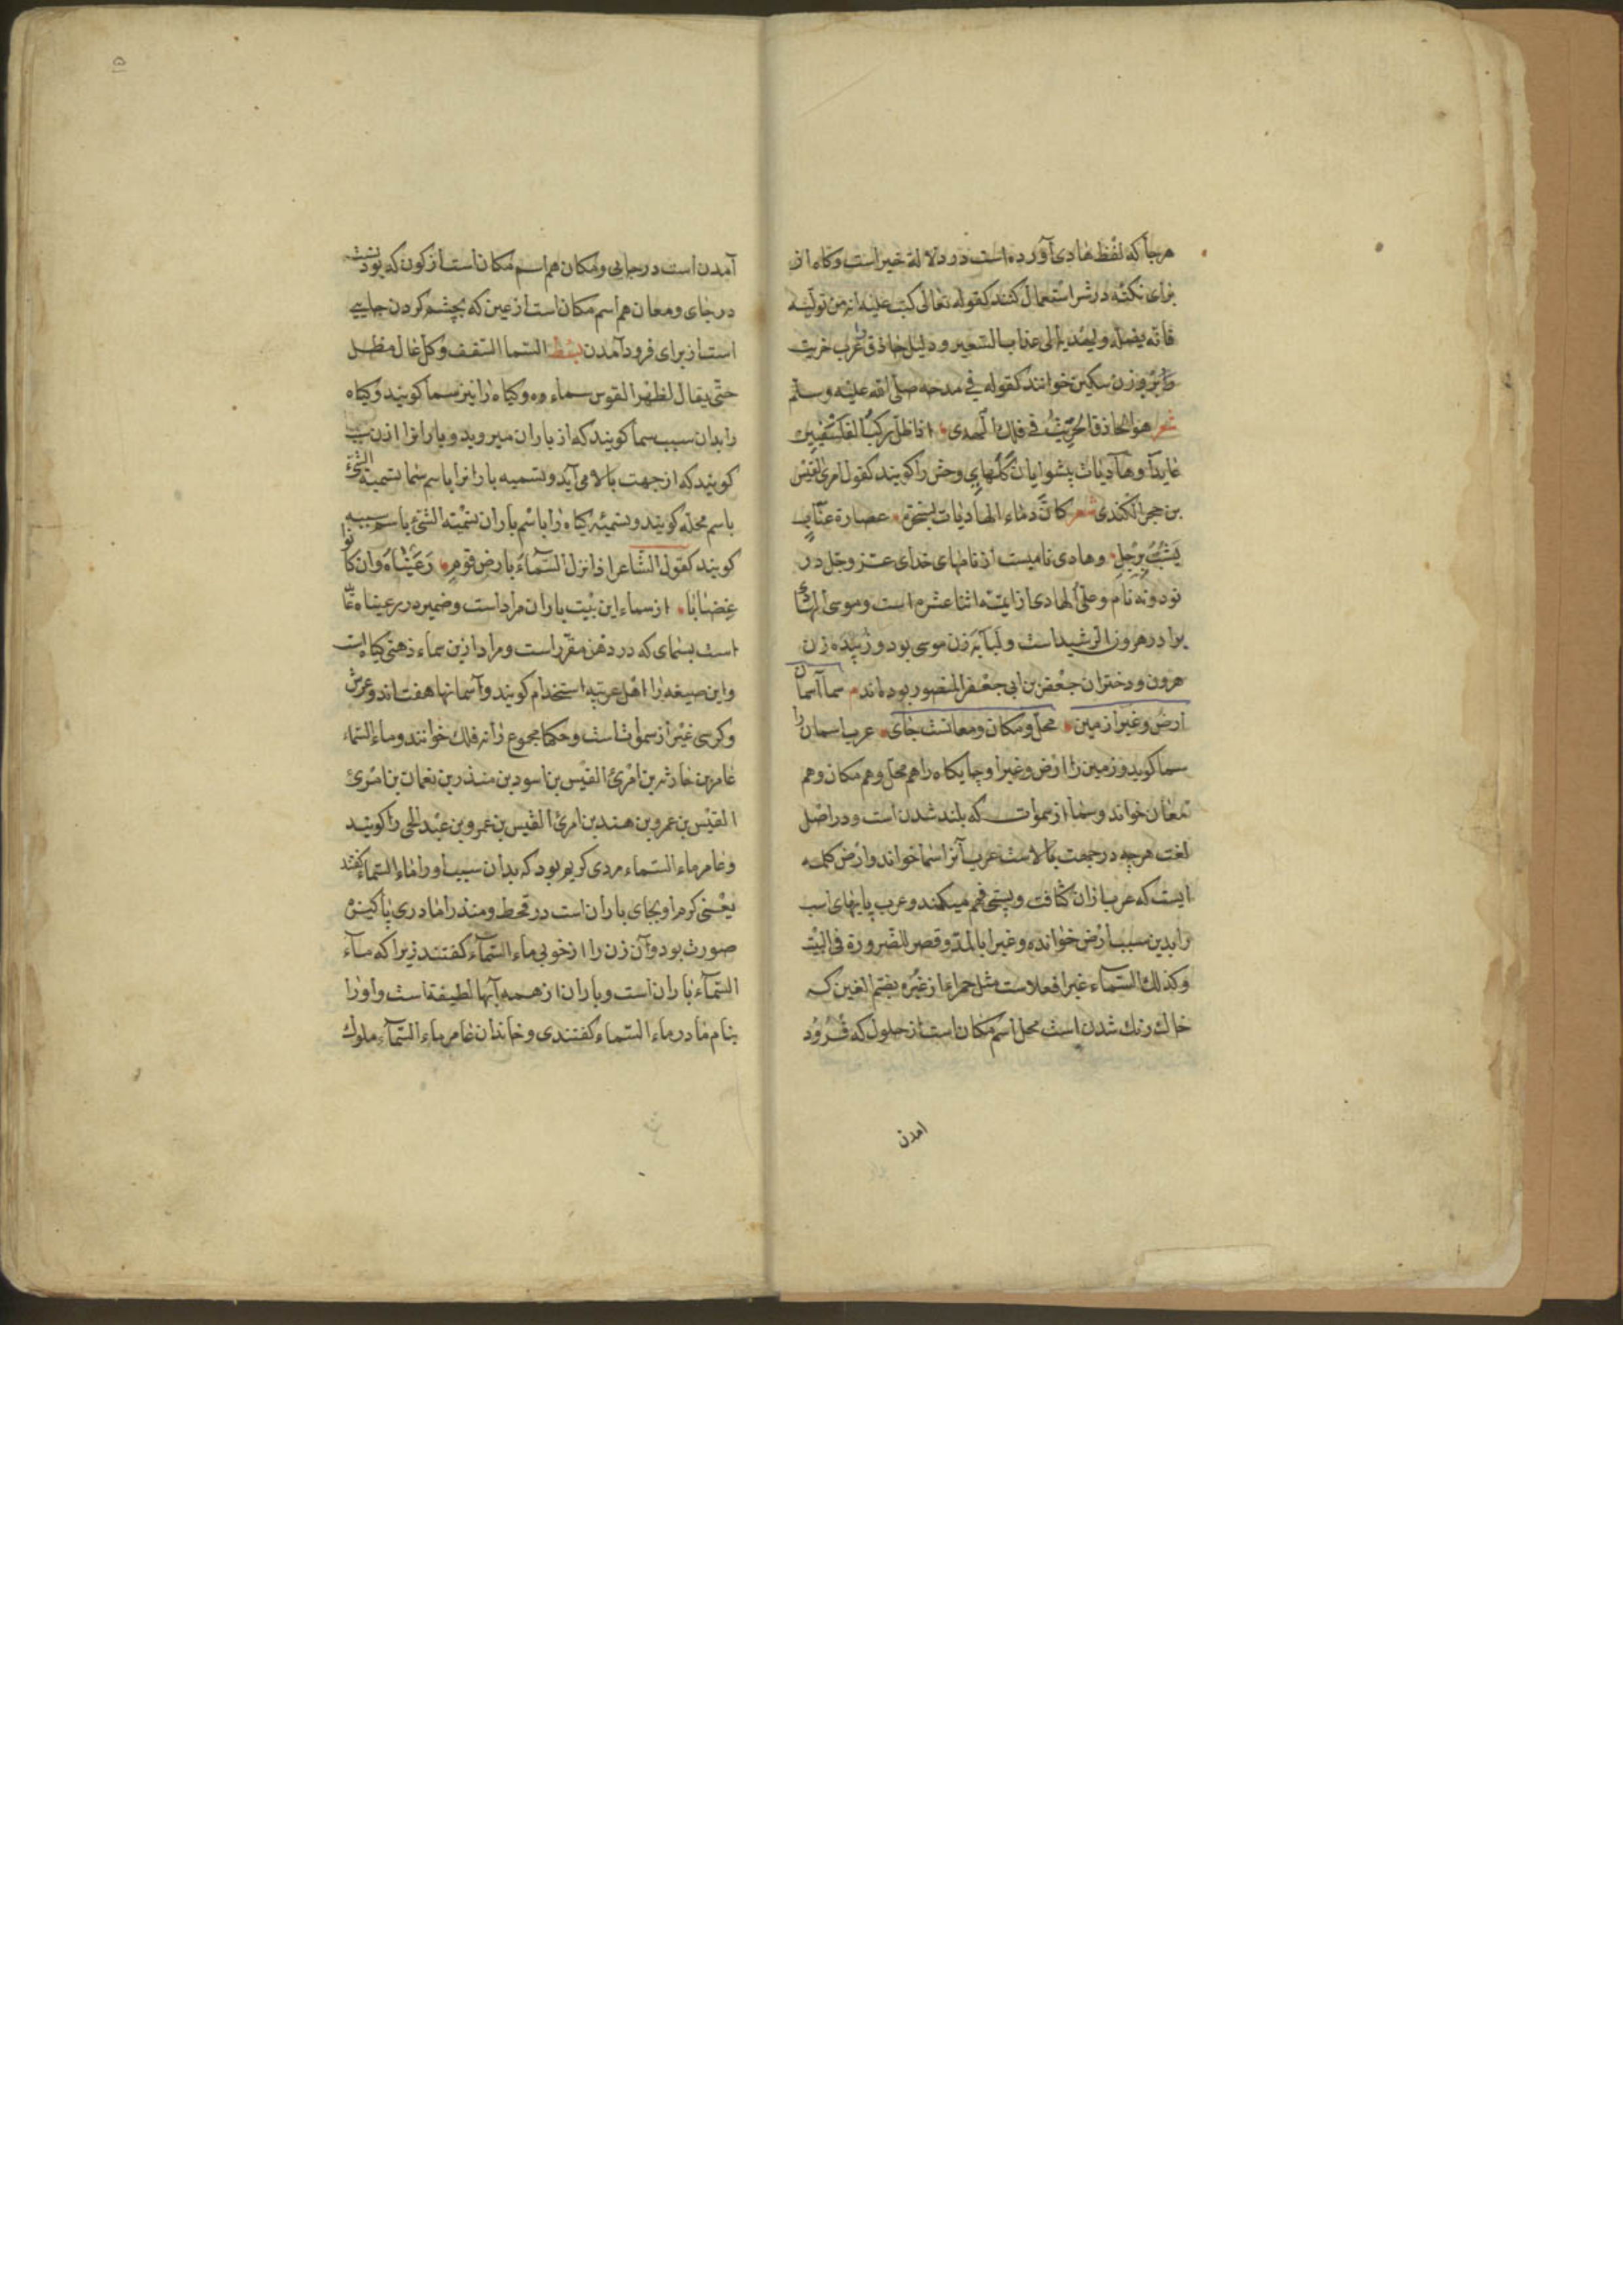 هرجا که لفظ هادی آورده است در دلالة خیر است و کاه از
برای نکته در شر استعمال کنند کقوله تعالی کتب علیه انه من تولیه
فانه یضله و یهدیه الی عذاب السعیر و دلیل حاذق را عرب خریت
بر وزن سکین خوانند کقوله فی مدحه صلی الله علیه وسلم
شعر هو الحاذق الخریت فی فلك الهدی اذا ظل رکب الفلسفیین
غایدا و هادیات پیشوایان کلهای وحش را کویند کقول امرئ القیس
بن حجر الکندی شعر کان دماء الهادیات بنحره عصارة حناء
بشیب مرجل و هادی نامیست از نامهای خدای عز وجل در
نود و نه نام و علی الهادی از ایمه اثنا عشره است و موسی الهادی
برادر هرون الرشید است و لبابه زن موسی بود و زبیده زن
هرون و دختران جعفر بن ابی جعفر المنصور بوده اند سما آسمان
ارض و غبرا زمین محل و مکان و معانست جای عرب اسمان را
سما کوید و زمین را ارض و غبرا و جایکاه را هم محل و هم مکان و هم
معان خواند و سما از سموات که بلند شدن است و در اصل
لغت هرچه در جهت بالاست عرب آنرا سما خواند و ارض کلمه
ایست که عرب ازان کثافت و پستی فهم میکند و عرب پایهای اسب
را بدین سبب ارض خوانده و غبرا بالمد و قصر للضرورة فی البیت
و کذلك السماء غبرا فعلاست مثل حمرا از غبره بضم الغین که
خاك رنك شدن است محل اسم مکان است از حلول که فرود
امدن
۵
آمدن است در جایی و مکان هم اسم مکان است از کون که بود نست
در جای و معان هم اسم مکان است از عین که بچشم کردن جایی
است از برای فرود آمدن السما السقف و کل عال مظل
حتی یقال لظهر القوس سماء و کیاه را نیز سما کویند و کیاه
را بدان سبب سما کویند که از باران میروید و بارانرا ازن سبب
کویند که از جهت بالا می آید و تسمیه بارانرا باسم سما تسمیة الشئ
باسم محله کویند و تسمیه کیاه را باسم باران تسمیة الشئ باسم سببه
کویند کقول الشاعر اذا نزل السماء بارض قوم رعیناه وان کانوا
غضابا از سماء این بیت باران مراد است و ضمیر در رعیناه
است بسمای که در ذهن مقرر است و مراد ازین سماء ذهنی کیاه است
و این صیغه را اهل عربیه استخدام کویند و آسمانها هفت اند و عرش
و کرسی غیر از سموات است و حکما مجموع را نه فلك خوانند و ماء السماء
عامر بن حارثه بن امرئ القیس بن اسود بن منذر بن نعمان بن امرئ
القیس بن عمرو بن هند بن امرئ القیس بن عمرو بن عبد الحی را کویند
و عامر ماء السماء مردی کریم بود که بدان سبب اورا ماء السماء کفتند
یعنی کرم او بجای باران است در قحط و منذر را مادری پاکیزه
صورت بود و آن زن را از خوبی ماء السماء کفتند زیرا که ماء
السماء باران است و باران از همه آبها لطیفة است و اورا
بنام مادر ماء السماء کفتندی و خاندان عامر ماء السماء ملوك